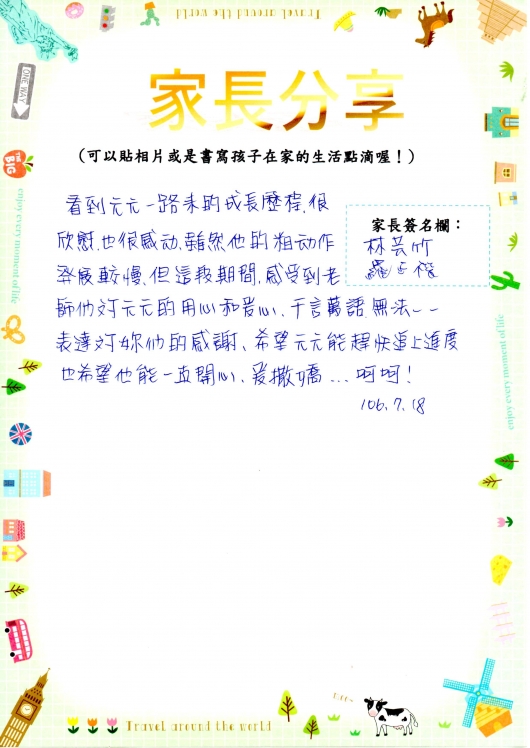 Travel around the world
ONE WAY
THE BIG
家長分享
(可以貼相片或是書寫孩子在家的生活點滴喔！)
家長簽名欄：
林芸竹
看到元元一路來的成長歷程,很
欣慰,也很感动,雖然他的粗动作
發展較慢,但這我期間,感受到老
師他对元元的用心和爱心、千言萬語無法一一
表達对妳他的感謝、希望元元能趕快追上進度
也希望他能一直開心、爱撒嬌...呵呵!
106.7.18
enjoy every moment of life
enjoy every moment of life
Travel around the world